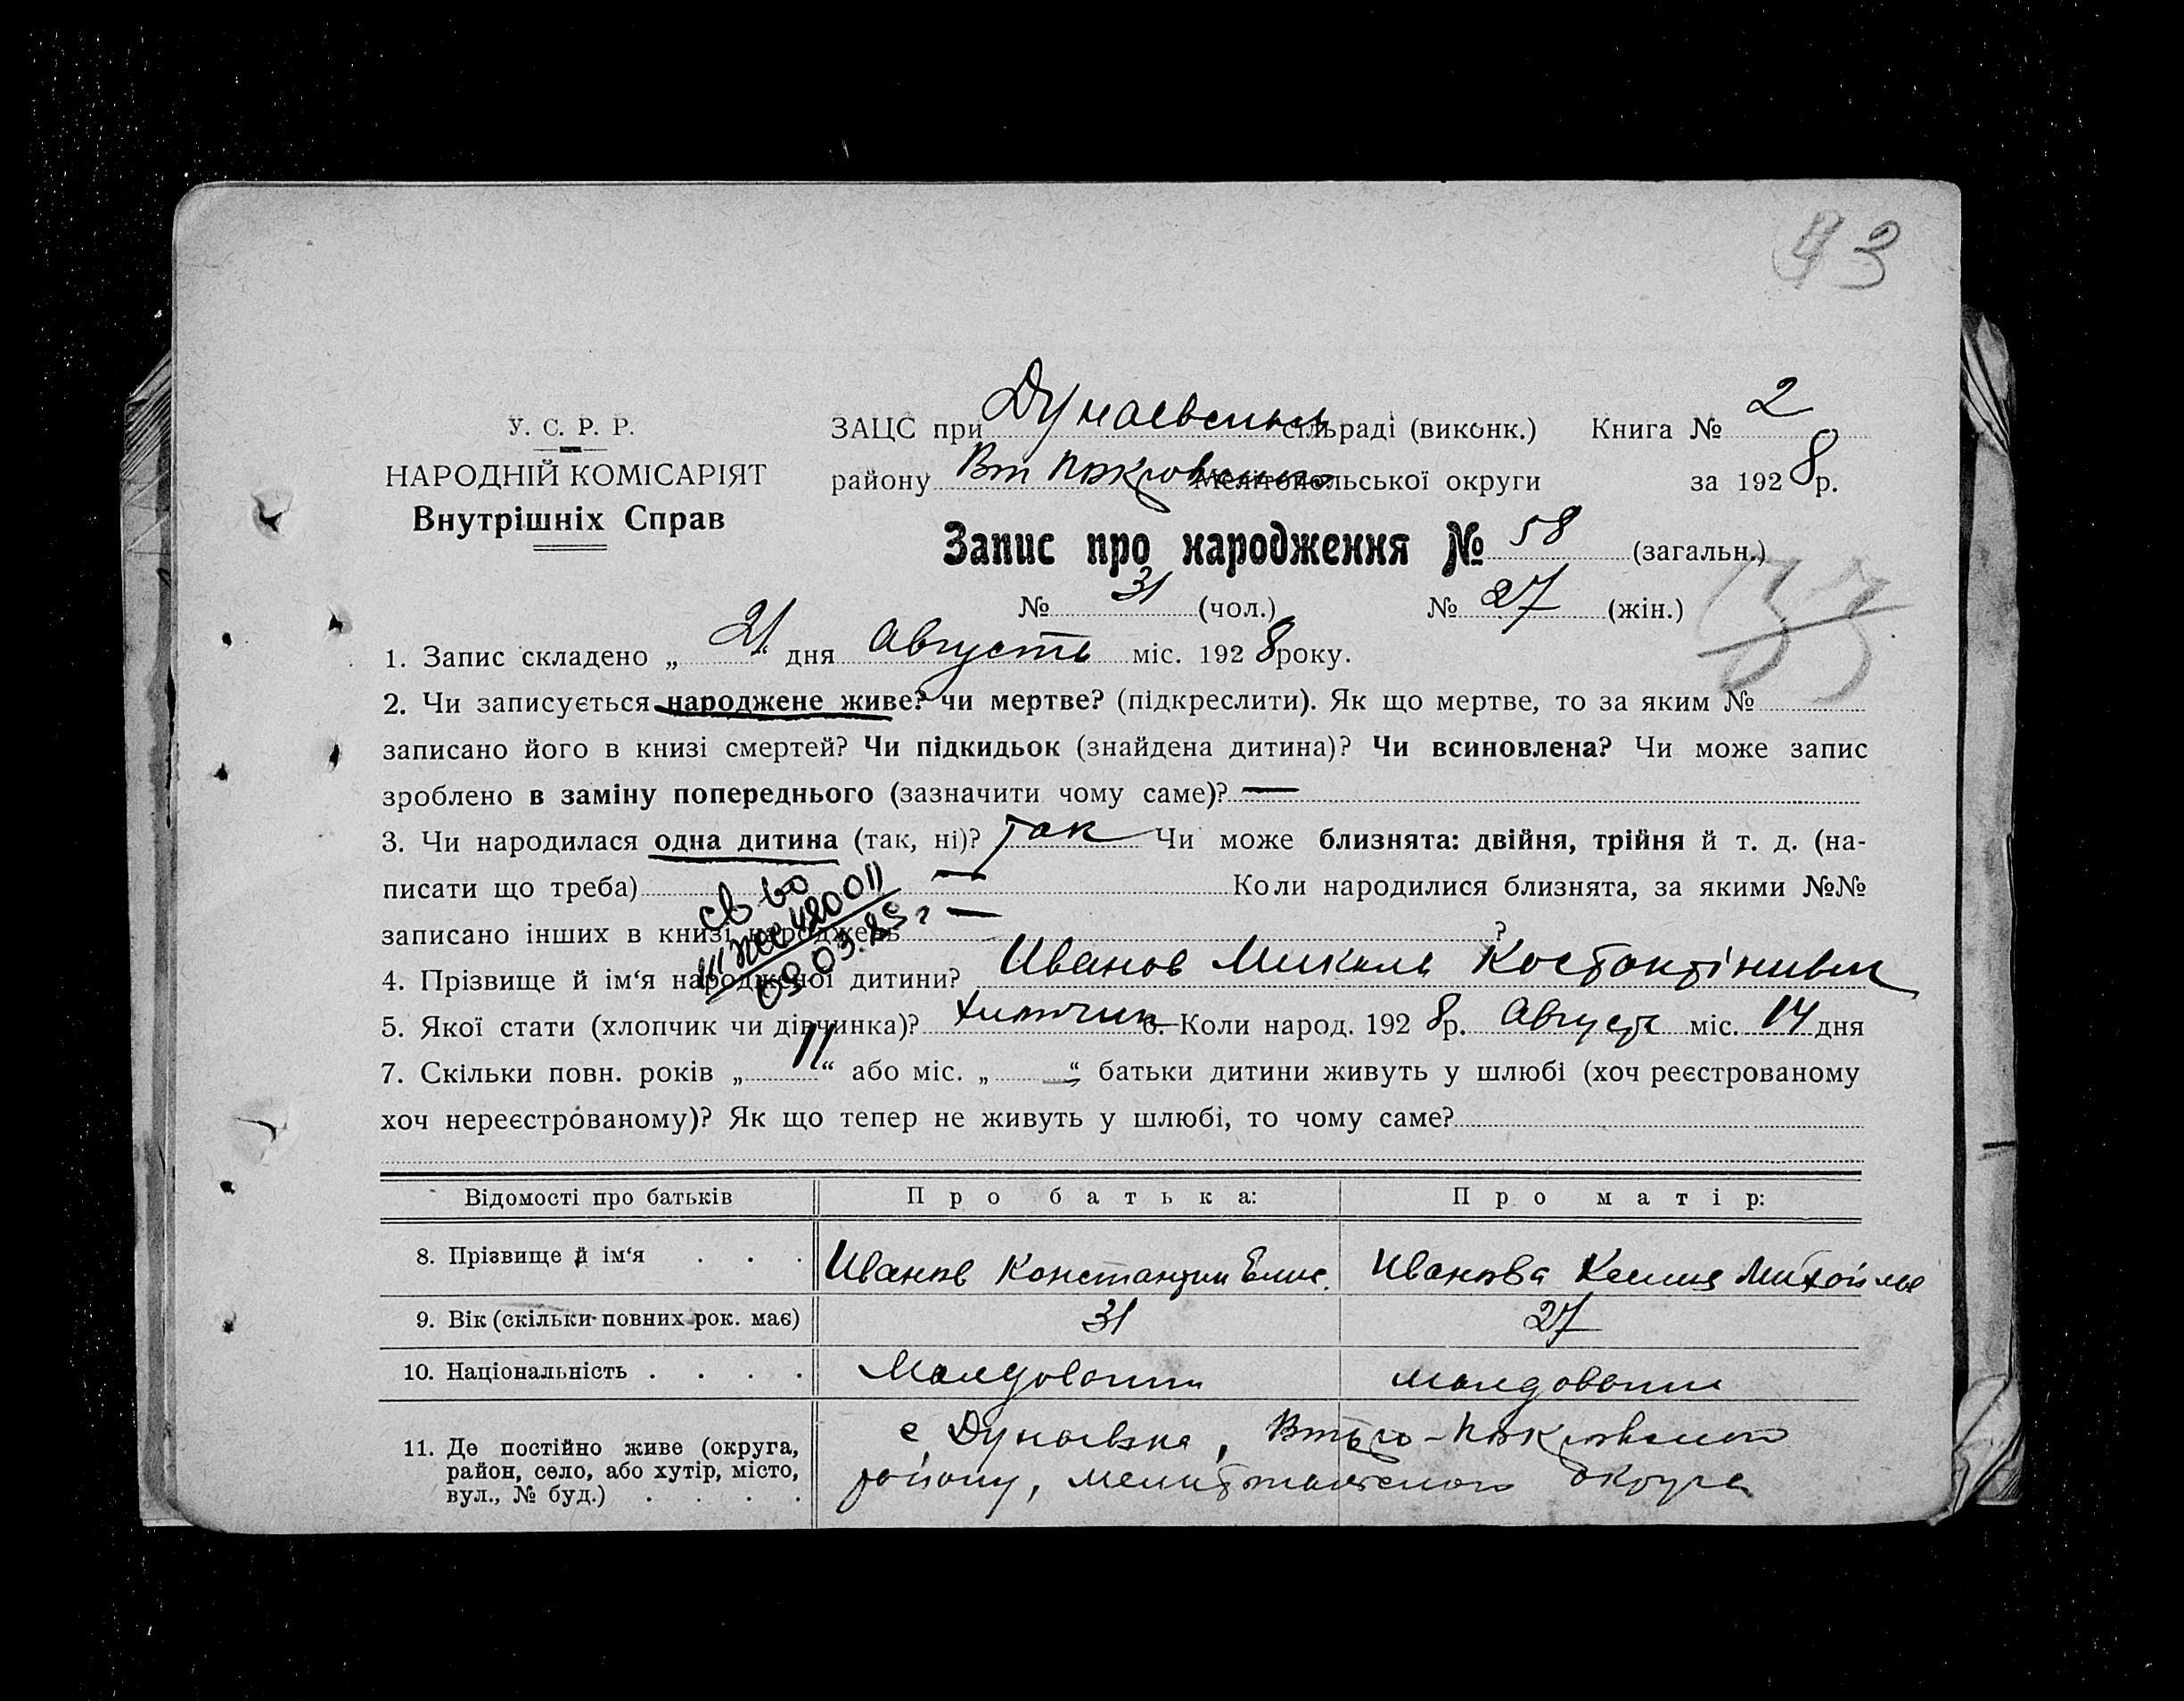 43
У. С. Р. Р.
НАРОДНІЙ КОМІСАРІЯТ
Внутрішніх Справ
ЗАЦС при Дунаевській сільраді (виконк.) Книга № 2
району Вт Покровсько Мелітопольської округи за 1928р.
Запис про народження № 58 (загальн.)
№ 31 (чол.) № 27 (жін.)
1. Запис складено „ 21 “ дня Августь міс. 1928 року.
2. Чи записується народжене живе? чи мертве? (підкреслити). Як що мертве, то за яким №
записано його в книзі смертей? Чи підкидьок (знайдена дитина)? Чи всиновлена? Чи може запис
зроблено в заміну попереднього (зазначити чому саме)? —
3. Чи народилася одна дитина (так, ні)? так Чи може близнята: двійня, трійня й т. д. (на-
писати що треба) — Коли народилися близнята, за якими №№
записано інших в книзі народжень — ?
св во
4. Прізвище й ім‘я народженої дитини? Иванов Микола Костянтінивич
5. Якої стати (хлопчик чи дівчинка)? хлопчик 6. Коли народ. 1928р. Август міс. 14 дня
7. Скільки повн. років „ 11 “ або міс. „ — “ батьки дитини живуть у шлюбі (хоч реєстрованому
хоч нереєстрованому)? Як що тепер не живуть у шлюбі, то чому саме?
Відомості про батьків Про батька: Про матір:
8. Прізвище й ім‘я . . . Иванов Константин Елис. Иванова Ксения Михайлов
9. Вік (скільки повних рок. має) 31 27
10. Національність . . . . Молдованин молдована
11. Де постійно живе (округа, район, село, або хутір, місто, вул., № буд.) . . . .
с Дунаевка, Второ-Покровского
району, мелитопольского округа